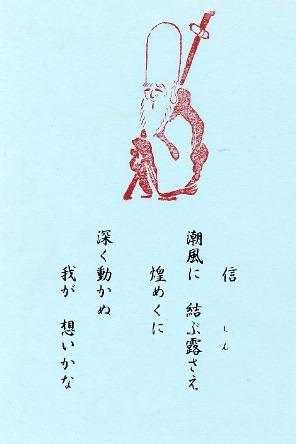 信 しん
潮風に 結ぶ露さえ
煌めくに
深く動かぬ
我が 想いかな